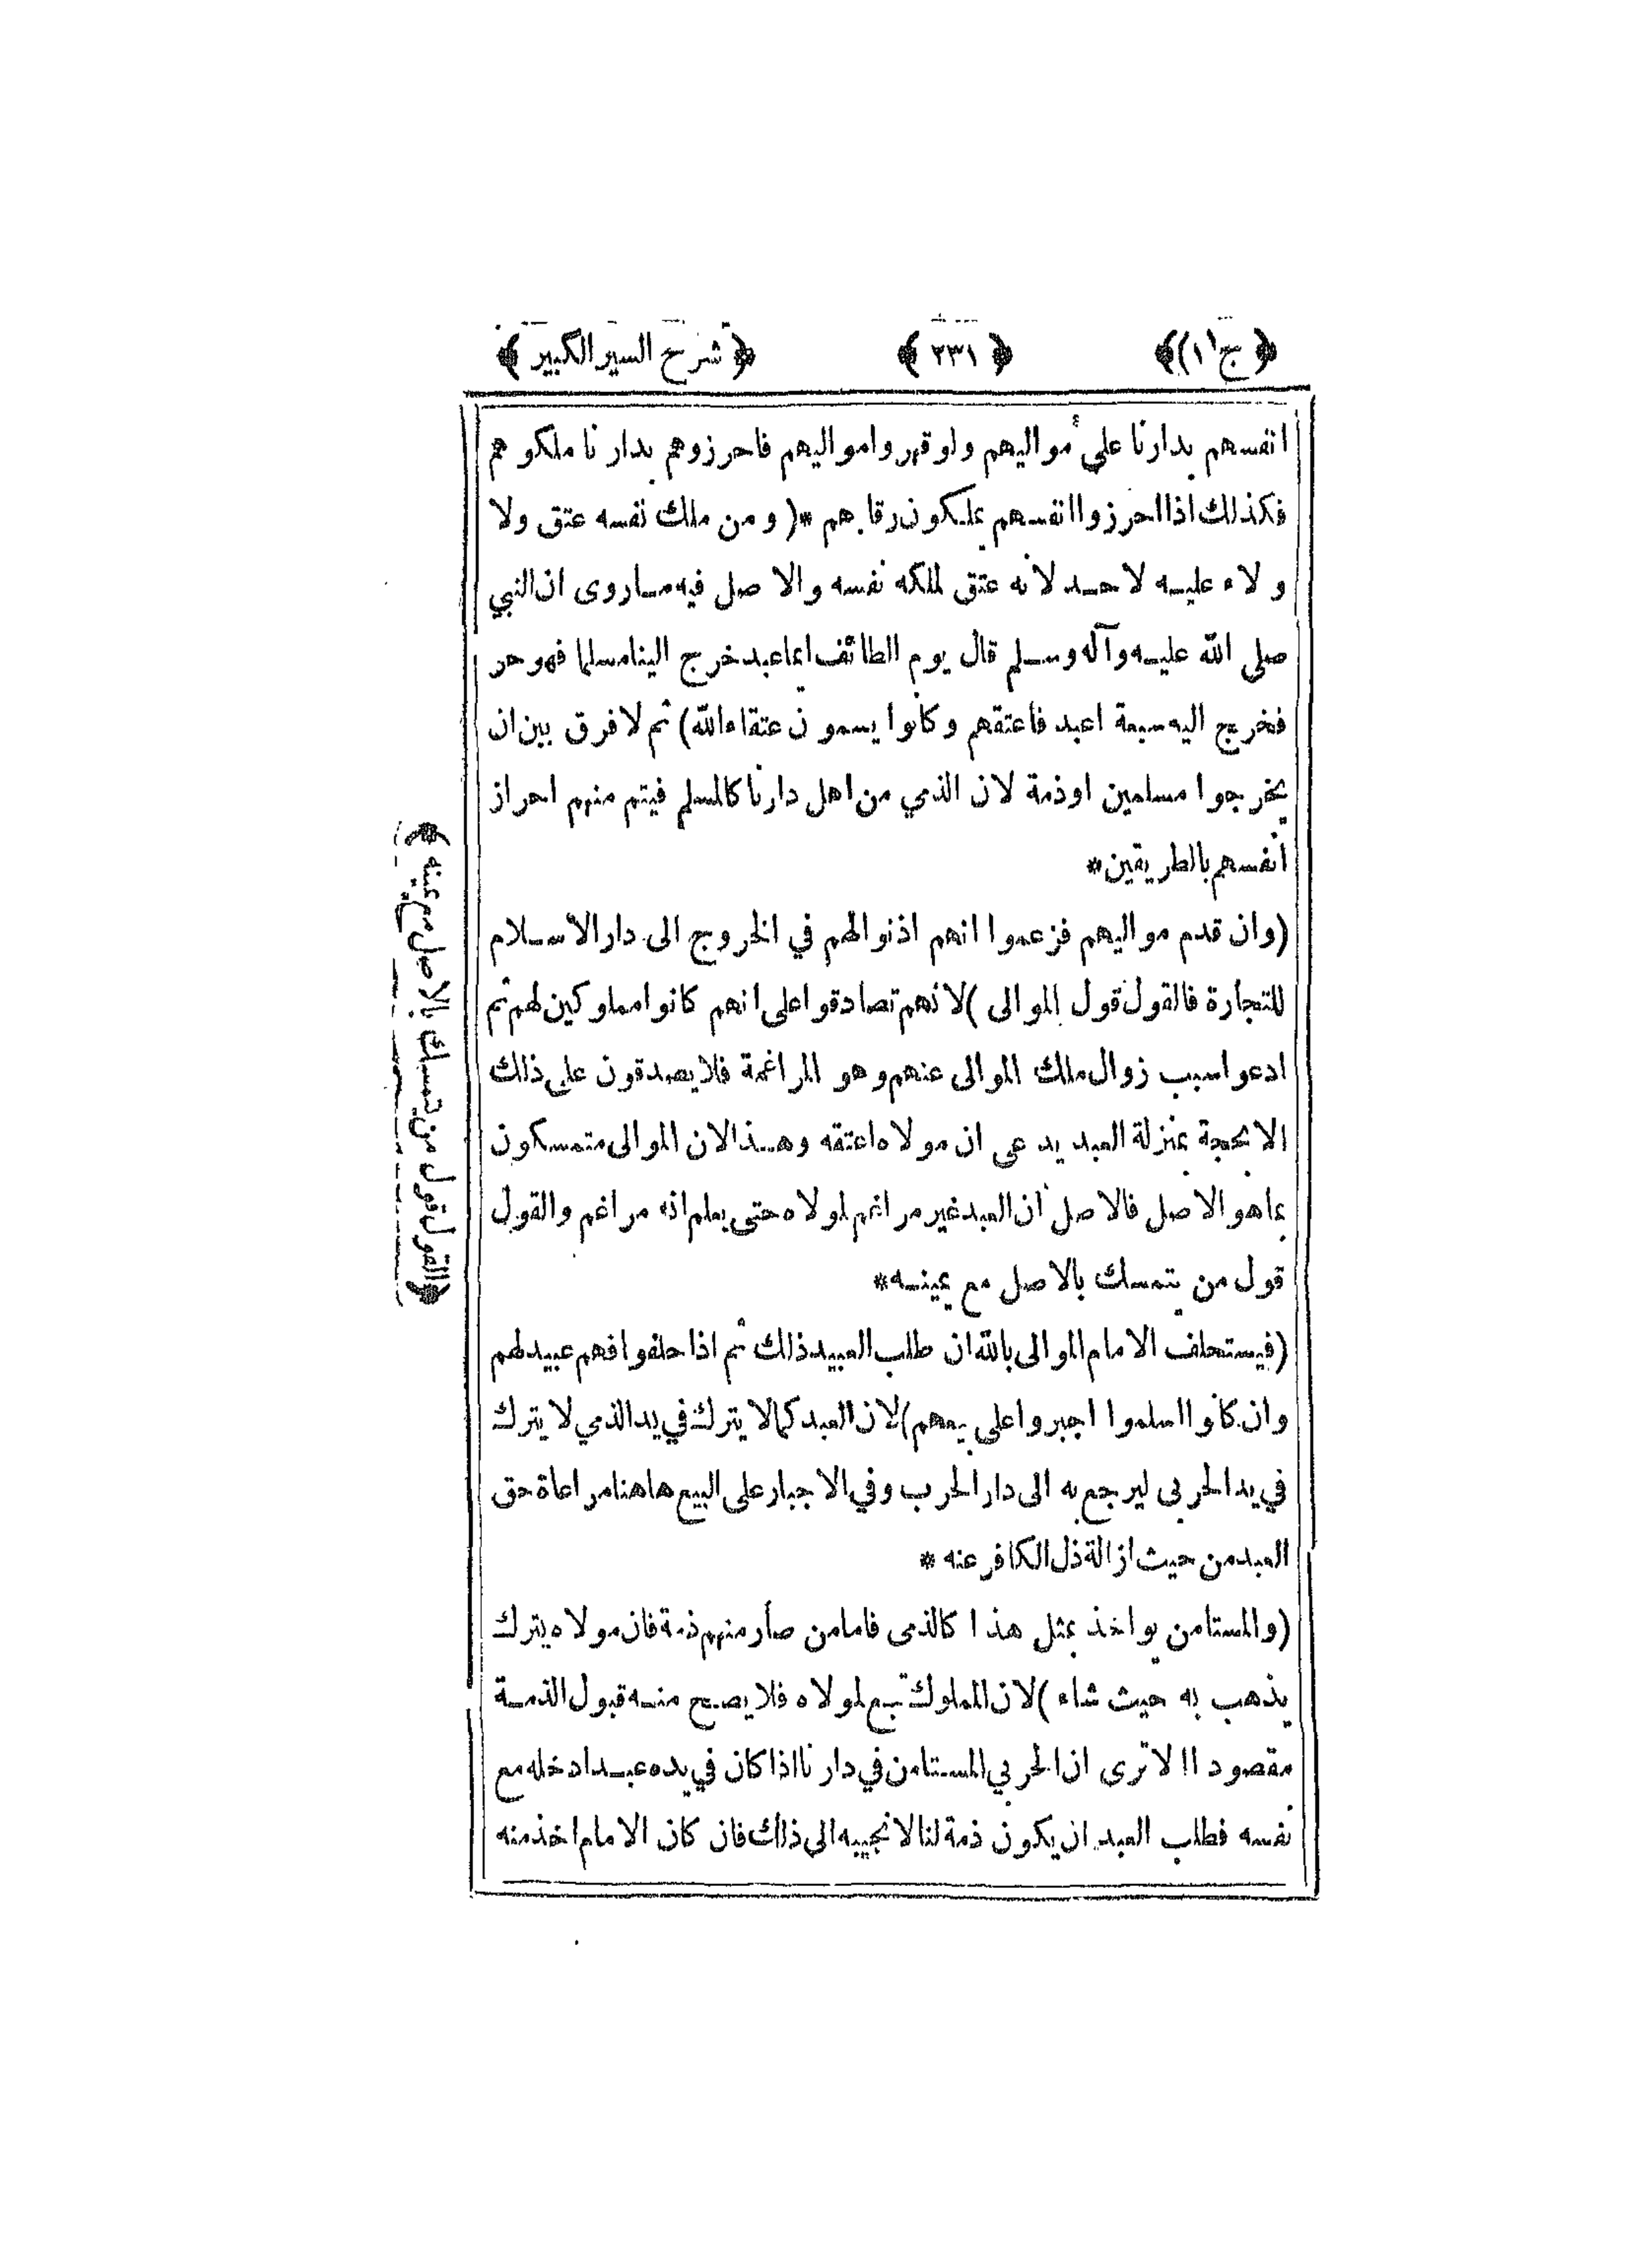 ﴿ شرح السير الكبير ﴾ ﴿ ٢٣١ ﴾ ﴿ ج (١) ﴾
انفسهم بدارنا على مواليهم ولو قهروا مواليهم فاحرزوهم بدارنا ملكوهم
فكذلك اذا احرزوا انفسهم يملكون رقابهم *( ومن ملك نفسه عتق ولا
ولاء عليه لاحد لانه عتق لملكه نفسه والاصل فيه ماروى ان النبي
صلى الله عليه وآله وسلم قال يوم الطائف ايما عبد خرج الينا مسلما فهو حر
فخرج اليه سبعة اعبد فاعتقهم وكانوا يسمون عتقاء الله) ثم لا فرق بين ان
يخرجوا مسلمين او ذمة لان الذمي من اهل دارنا كالمسلم فيتم منهم احراز
انفسهم بالطريقين*
(وان قدم مواليهم فزعموا انهم اذنوا لهم في الخروج الى دار الاسلام
للتجارة فالقول قول الموالى )لانهم تصادقوا على انهم كانوا مملوكين لهم ثم
ادعوا سبب زوال ملك الموالى عنهم وهو المراغمة فلا يصدقون على ذلك
الا بحجة بمنزلة العبد يدعى ان مولاه اعتقه وهذا لان الموالى متمسكون
بما هو الاصل فالاصل ان العبد غير مراغم لمولاه حتى يعلم انه مراغم والقول
قول من يتمسك بالاصل مع يمينه*
(فيستحلف الامام الموالى بالله ان طلب العبيد ذلك ثم اذا حلفوا فهم عبيد لهم
وان كانوا اسلموا اجبروا على بيعهم)لان العبد كما لا يترك في يد الذمي لا يترك
في يد الحربى ليرجع به الى دار الحرب وفي الاجبار على البيع هاهنا مراعاة حق
العبد من حيث ازالة ذل الكافر عنه *
(والمستامن يواخذ بمثل هذا كالذمى فاما من صار منهم ذمة فان مولاه يترك
يذهب به حيث شاء )لان المملوك تبع لمولاه فلا يصح منه قبول الذمة
مقصودا الا ترى ان الحربي المستامن في دارنا اذا كان في يده عبد ادخله مع
نفسه فطلب العبد ان يكون ذمة لنا لا نجيبه الى ذلك فان كان الامام اخذ منه
﴿القول قول من يتمسك بالاصل مع يمينه﴾